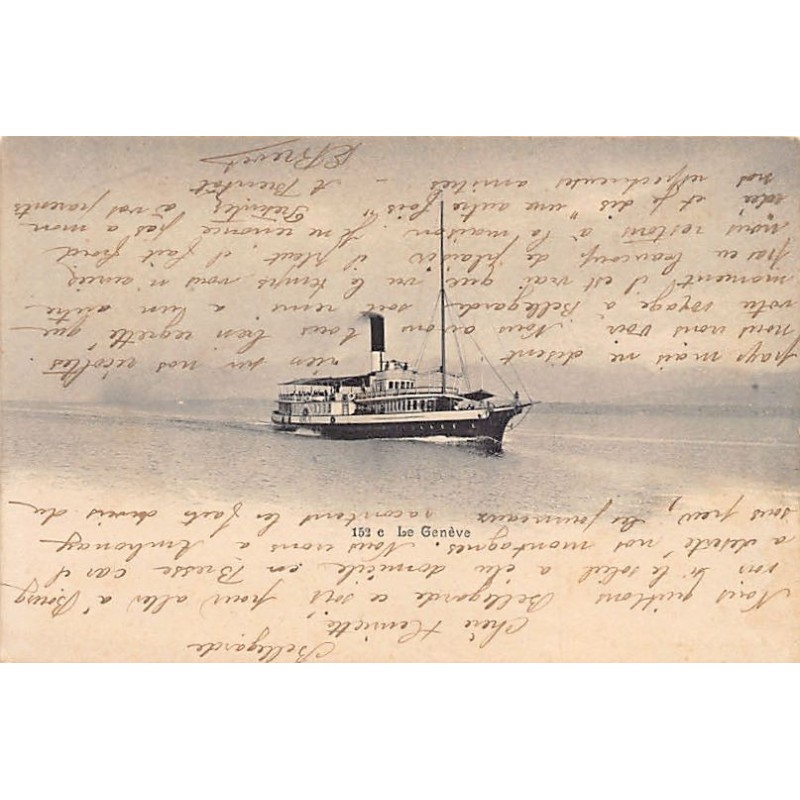 Bellegarde
Chère Henriette,
Nous quittons Bellegarde ce soir pour aller à Bourg
voir si le soleil a élu domicile en Bresse car il
a déserté nos montagnes. Nous vous a
sous peu, les journaux racontent les faits divers du
152 c Le Genève
pays mais ne disent rien sur nos récoltes.
nous vous voir. Nous avons tous bien regretté que
votre voyage à Bellegarde soit remis à un autre
moment il est vrai que vu le temps vous n'auriez
pas eu beaucoup de plaisir il pleut, il fait froid
nous restons à la maison. Je ne renonce pas à mon
idée et je dis "une autre fois". Présentez à vos parents
nos respectueuses amitiés – A Bientôt